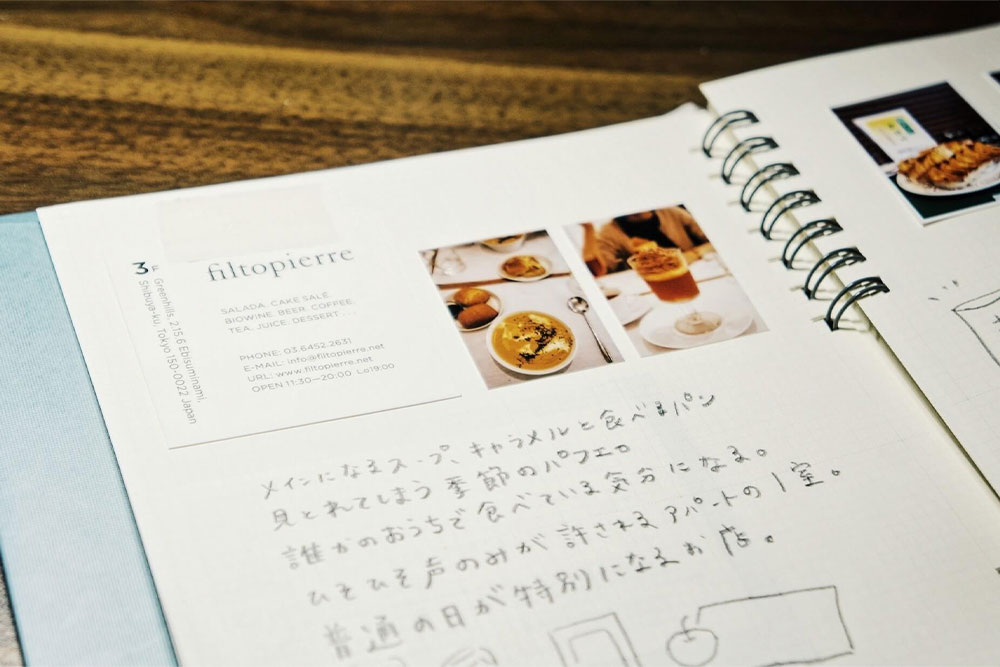 filtopierre
SALADA. CAKE SALE.
BIOWINE. BEER. COFFEE.
TEA. JUICE. DESSERT . . .
PHONE: 03.6452.2631
E-MAIL: info@filtopierre.net
URL: www.filtopierre.net
OPEN 11:30—20:00 Lo19:00
3F
Greenhills, 2.15.6 Ebisuminami,
Shibuya-ku, Tokyo 150-0022 Japan
メインになるスープ、キャラメルと食べるパン
見とれてしまう季節のパフェ。
誰かのおうちで食べている気分になる。
ひそひそ声のみが許されるアパートの1室。
普通の日が特別になるお店。